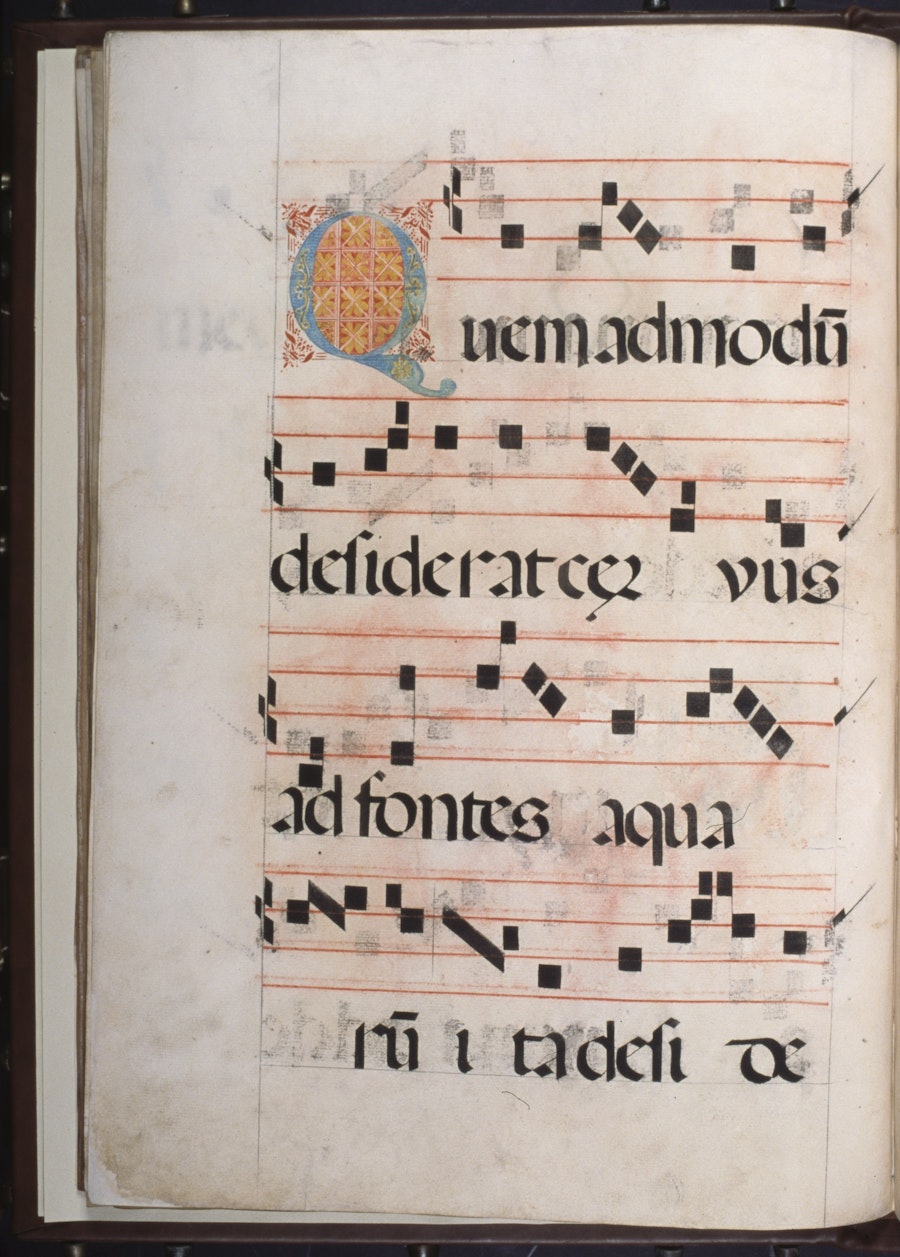 Quem admodū
desiderat ceꝝ vus
ad fontes aqua
rū i ta desi de